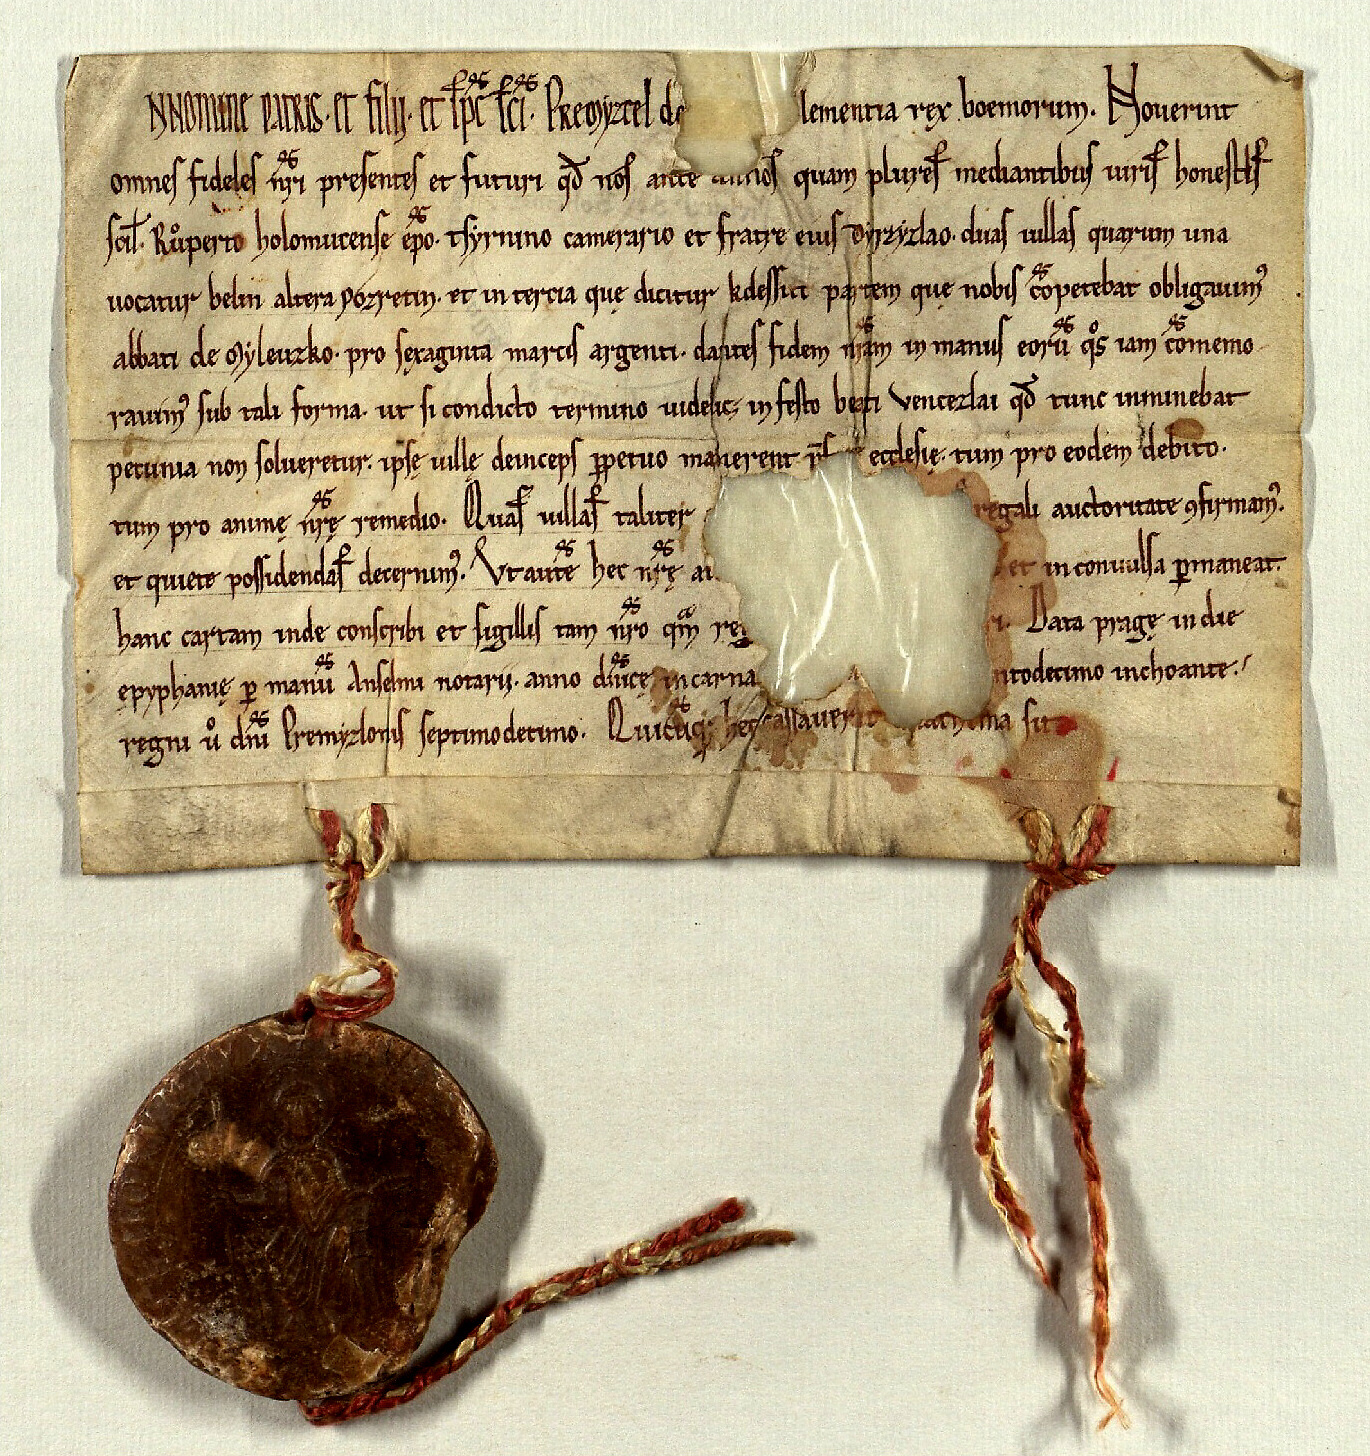 N NOMINE PATRIS. et filij. et sp̄c sc̄i. Premyzcel de lementia rex boemorum. Nouerint
omnes fideles nr̄i presentes et futuri qđ nos ante annos quam plures mediantibus uiris honestis
scil. Růperto holomucense ep̄o. tsyrnino camerario et fratre eius Dyrzyzlao. duas uillas quarum una
uocatur belin altera pozretin. et in tercia quę dicitur kdessici partem quę nobis cōpetebat obligauim⁹
abbati de Myleuzko. pro sexaginta marcis argenti. dantes fidem nr̄am in manus eorū qͦs iam cōmemo
rauim⁹ sub tali forma. ut si condicto termino uidelic; in festo beati Vencezlai qđ tunc inminebat
pecunia non solueretur. ipsę uillę deinceps ꝑpetuo manerent ecclesię. tum pro eodem debito.
tum pro animę nr̄ę remedio. Quas uillas taliter regali auctoritate ꝯfirmam⁹.
et quiete possidendas decernim⁹. Vt autē hec nr̄ę et inconuulsa ꝑmaneat.
hanc cartam inde conscribi et sigillis tam nr̄o qm̄ Data pragę in die
epyphanię ꝑ manū Anselmi notarij. anno dn̄icę incarna ntodecimo inchoante.
regni ů dn̄i Premyzlonis septimodecimo. Quicūq; hec cassauerit sit